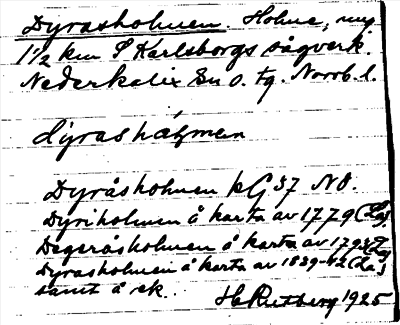 Dyrasholmen. Holme, mij
1 1/2 km S Karlsborgs sågverk.
Nederkalix sn o. tg. Norrb. l.
dýrashålmen
Dyråsholmen kG 37 NO.
Dyriholmen å karta av 1779 (La).
Degeråsholmen å karta av 179 (La)
Dyrasholmen å karta av 1839-42 (La.)
samt å ek.
H Rutberg 1925